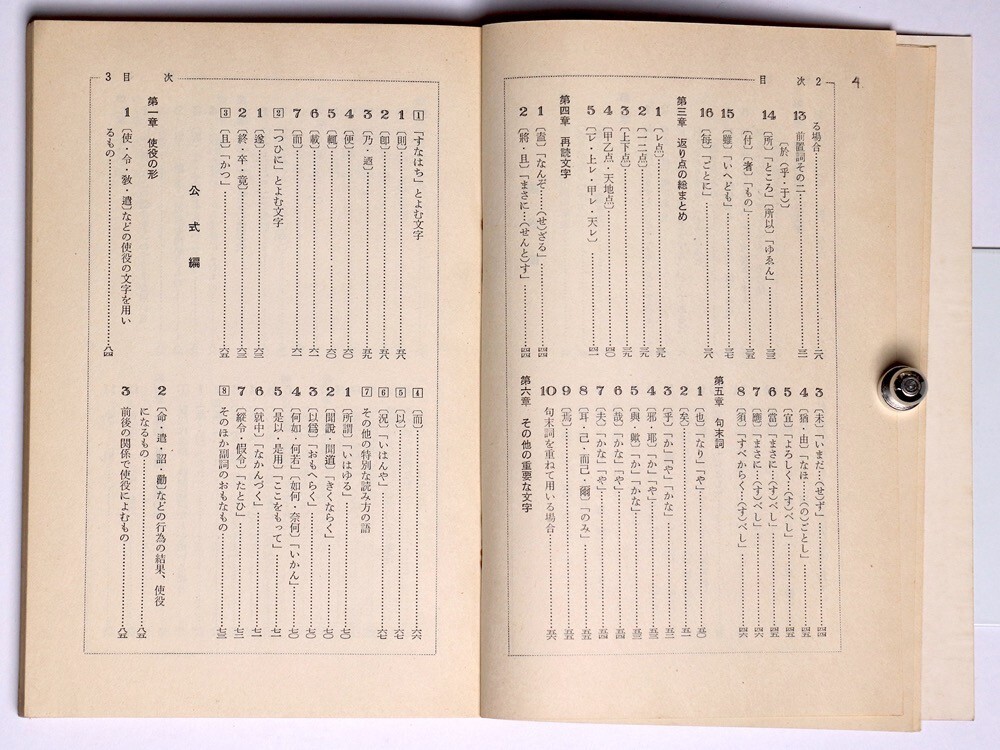 目次 2
4
る場合……二六
13 前置詞その二
〔於（乎・于）〕……三一
14 〔所〕「ところ」〔所以〕「ゆゑん」……三三
〔付〕〔者〕「もの」……三五
15 〔雖〕「いへども」……三七
16 〔毎〕「ごとに」……三八
第三章 返り点の総まとめ
1 〔レ点〕……三九
2 〔一二点〕……三九
3 〔上下点〕……三九
4 〔甲乙点・天地点〕……四〇
5 〔レ・上レ・甲レ・天レ〕……四一
第四章 再読文字
1 〔盍〕「なんぞ…（せ）ざる」……四四
2 〔將・且〕「まさに…（せんと）す」……四四
3 〔未〕「いまだ…（せ）ず」……四四
4 〔猶・由〕「なほ…（の）ごとし」……四五
5 〔宜〕「よろしく…（す）べし」……四五
6 〔當〕「まさに…（す）べし」……四五
7 〔應〕「まさに…（す）べし」……四六
8 〔須〕「すべからく…（す）べし」……四六
第五章 句末詞
1 〔也〕「なり」「や」……五〇
2 〔矣〕……五一
3 〔乎〕「か」「や」「かな」……五二
4 〔邪・耶〕「か」「や」……五三
5 〔與・歟〕「か」「かな」……五三
6 〔哉〕「かな」「や」……五四
7 〔夫〕「かな」「や」……五四
8 〔耳・已・而已・爾〕「のみ」……五五
9 〔焉〕……五五
10 句末詞を重ねて用いる場合……五六
第六章 その他の重要な文字
3 目次
1 「すなはち」とよむ文字
1 〔則〕……五八
2 〔卽〕……五八
3 〔乃・迺〕……五九
4 〔便〕……六〇
5 〔輒〕……六〇
6 〔載〕……六一
7 〔而〕……六一
2 「つひに」とよむ文字
1 〔遂〕……六三
2 〔終・卒・竟〕……六三
3 〔且〕「かつ」……六五
4 〔而〕……六六
5 〔以〕……六七
6 〔況〕「いはんや」……六七
7 その他の特別な読み方の語
1 〔所謂〕「いはゆる」……七〇
2 〔聞說・聞道〕「きくならく」……七〇
3 〔以爲〕「おもへらく」……七〇
4 〔何如・何若〕〔如何・奈何〕「いかん」……七〇
5 〔是以・是用〕「ここをもって」……七一
6 〔就中〕「なかんづく」……七一
7 〔縱令・假令〕「たとひ」……七二
8 そのほか副詞のおもなもの……七三
公式編
第一章 使役の形
1 〔使・令・敎・遣〕などの使役の文字を用い
るもの……八四
2 〔命・遣・詔・勸〕などの行為の結果、使役
になるもの……八五
3 前後の関係で使役によむもの……八五